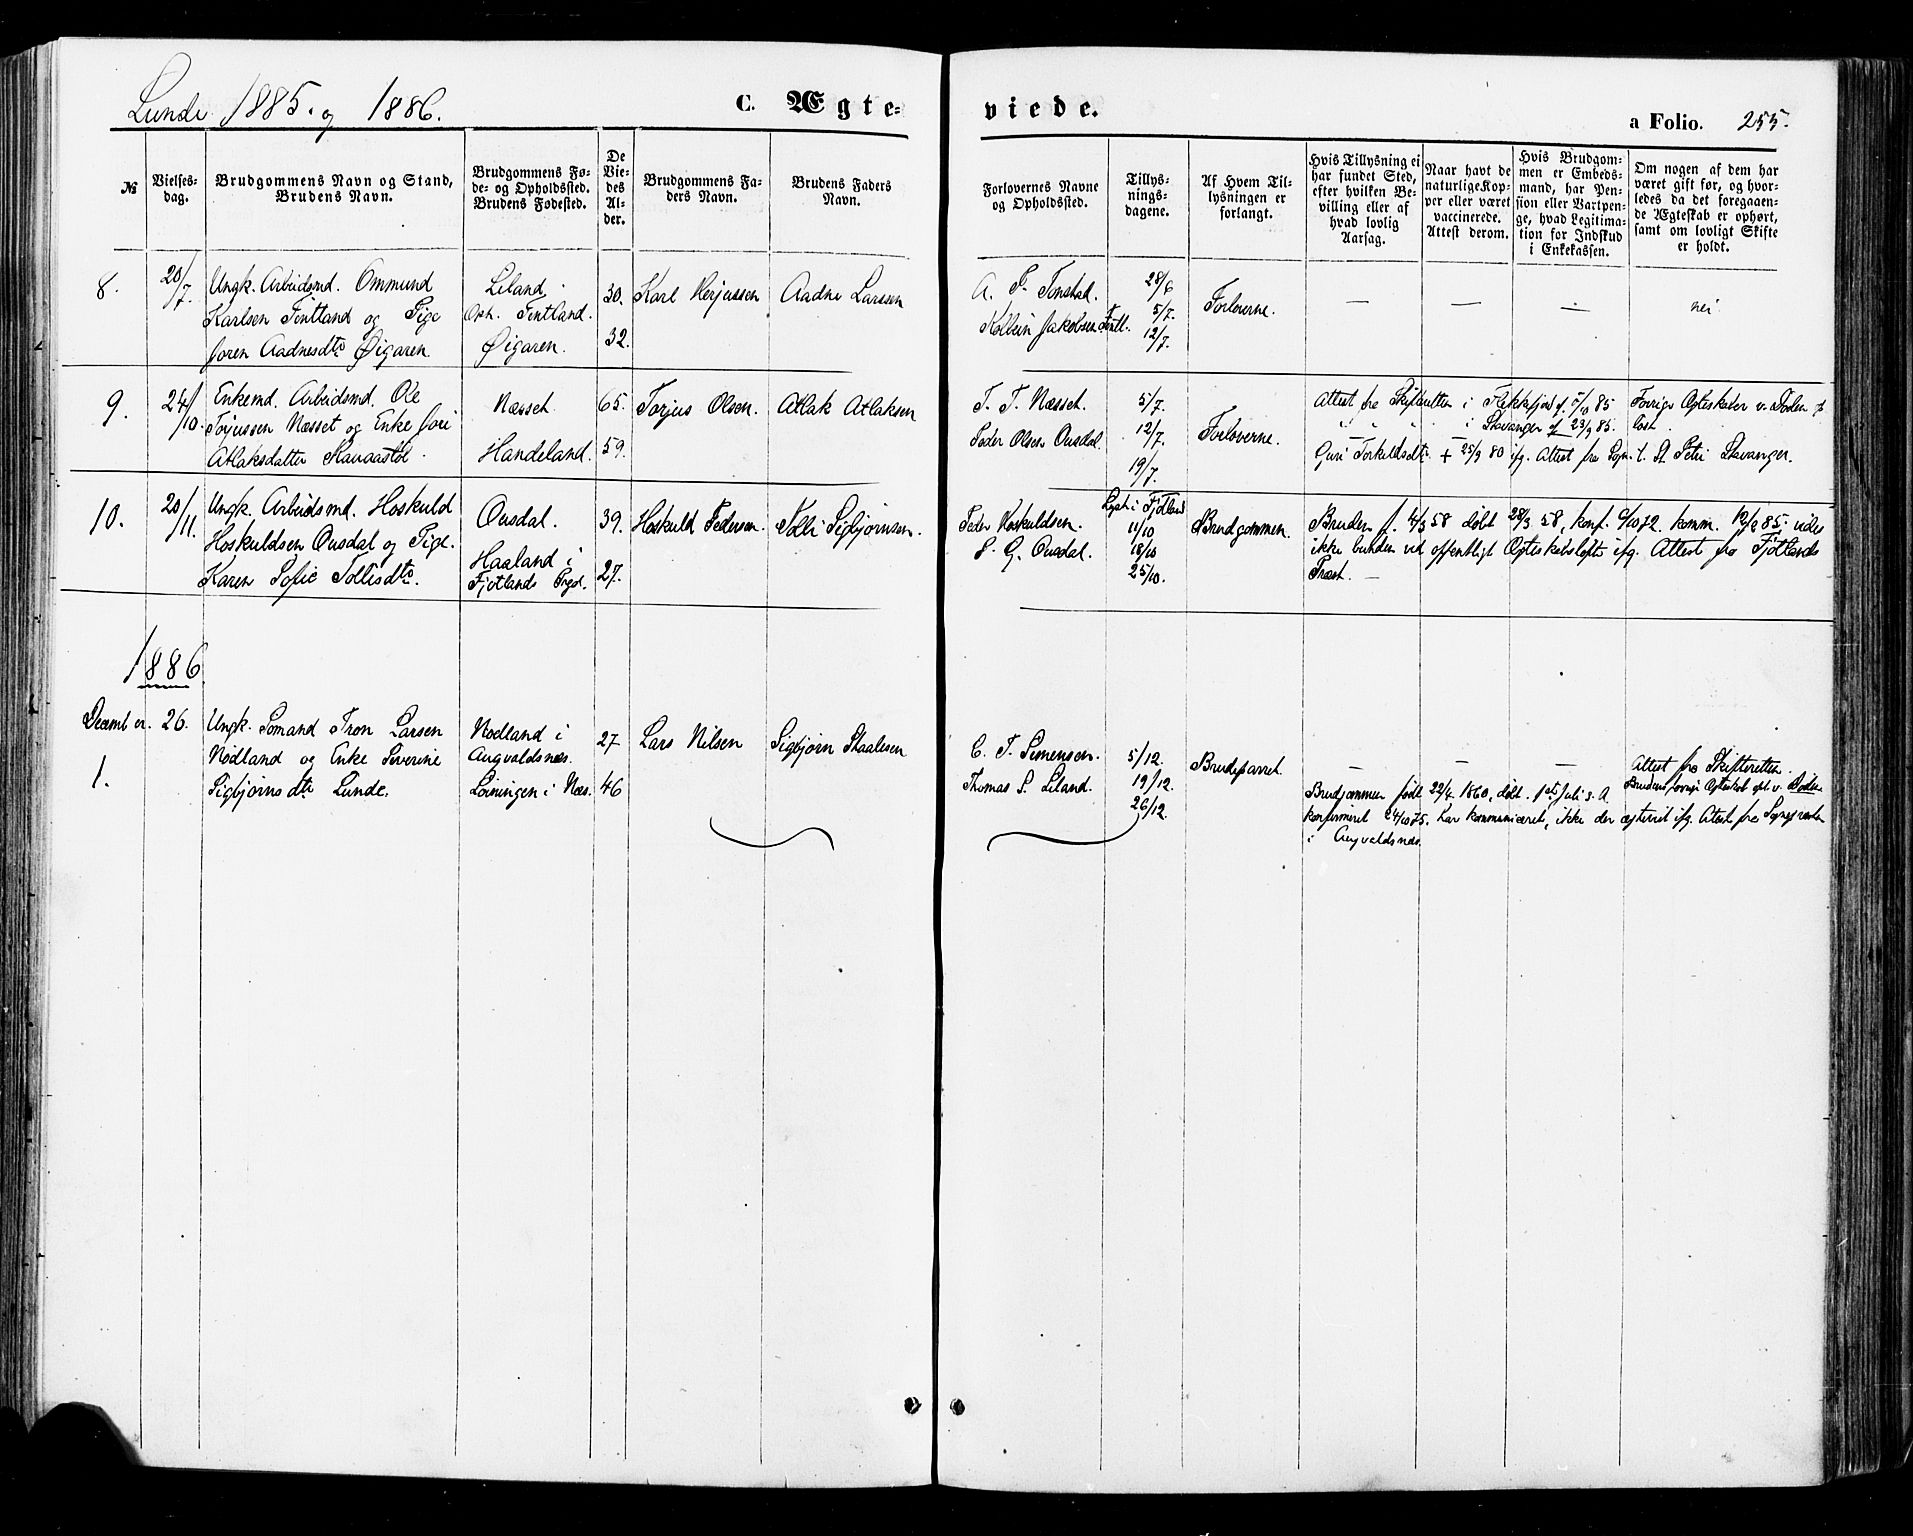 Lunde 1885. og 1886.
C. Ægte-
viede.
a Folio. 255.
№
Vielses-
dag.
Brudgommens Navn og Stand,
Brudens Navn.
Brudgommens Fø-
de- og Opholdssted.
Brudens Fødested.
De
Vie-
des
Al-
der.
Brudgommens Fa-
ders Navn.
Brudens Faders
Navn.
Forlovernes Navne
og Opholdssted.
Tillys-
nings-
dagene.
Af Hvem Til-
lysningen er
forlangt.
Hvis Tillysning ei
har fundet Sted,
efter hvilken Be-
villing eller af
hvad lovlig
Aarsag.
Naar havt de
naturlige Kop-
per eller været
vaccinerede.
Attest derom.
Hvis Brudgom-
men er Embeds-
mand, har Pen-
sion eller Vartpen-
ge, hvad Legitima-
tion for Indskud
i Enkekassen.
Om nogen af dem har
været gift før, og hvor-
ledes da det foregaaen-
de Ægteskab er ophørt,
samt om lovligt Skifte
er holdt.
8.
20/7.
Ungk. Arbeidsmd. Ommund
Karlsen Fintland og Pige
Joren Aadnesdtr Øigaren.
Liland.
Oph. Fintland.
Øigaren.
30.
32.
Karl Herjussen
Aadne Larsen
A. P. Tonstad.
Kolbein Jakobsen Fintl.
28/6
5/7.
12/7.
Forloverne.
—
—
—
nei
9.
24/10.
Enkemd. Arbeidsmd. Ole
Torjussen Næsset og Enke Jori
Atlaksdatter Stavaastøl.
Næsset.
Handeland.
65.
59.
Torjus Olsen.
Atlak Atlaksen
T. T. Næsset.
Peder Olsen Ousdal.
5/7.
12/7.
19/7.
Forloverne.
Attest fra Skifteretten i Flekkefjord af 5/10 85
" " " i Stavanger af 23/9 85.
Guri Torkeldsdtr. + 25/9 80 ifg. Attest fra Sopr. t. St. Petri Stavanger.
Forrige Ægteskaber v. Døden op
løst.
10.
20/11.
Ungk. Arbeidsmd. Hoskuld
Hoskuldsen Ousdal og Pige
Karen Sofie Tollisdtr.
Ousdal.
Haaland i
Fjotlands Prgd.
39.
27.
Hoskuld Pedersen.
Tolli Sigbjørnsen.
Peder Hoskuldsen.
S. G. Ousdal.
Lyst i Fjotland
11/10
18/10
25/10.
Brudgommen.
Bruden f. 4/3 58 døbt 28/3 58, konf. 6/10 72 komm. 12/2 85. vides
ikke bunden ved offentligt Ægteskabsløfte ifg. Attest fra Fjotlands
Præst. —
1886
December. 26.
1.
Ungk. Sømand Tron Larsen
Nodland og Enke Severine
Sigbjørnsdtr Lunde.
Nodland i
Augvaldsnæs.
Loiningen i Næs.
27
46
Lars Nilsen
Sigbjørn Staalesen
C. T. Simensen.
Thomas S. Liland.
5/12.
19/12.
26/12.
Brudeparret.
—
—
—
Attest fra Skifteretten.
Brudens forrige Ægteskab opl. v. Døden
Brudgommen født 22/4 1860, døbt 1ste Juli s. A.
konfirmeret 24/10 75. har kommuniceret, ikke der ægteviet ifg. Attest fra Sognepræsten
i Augvaldsnæs.